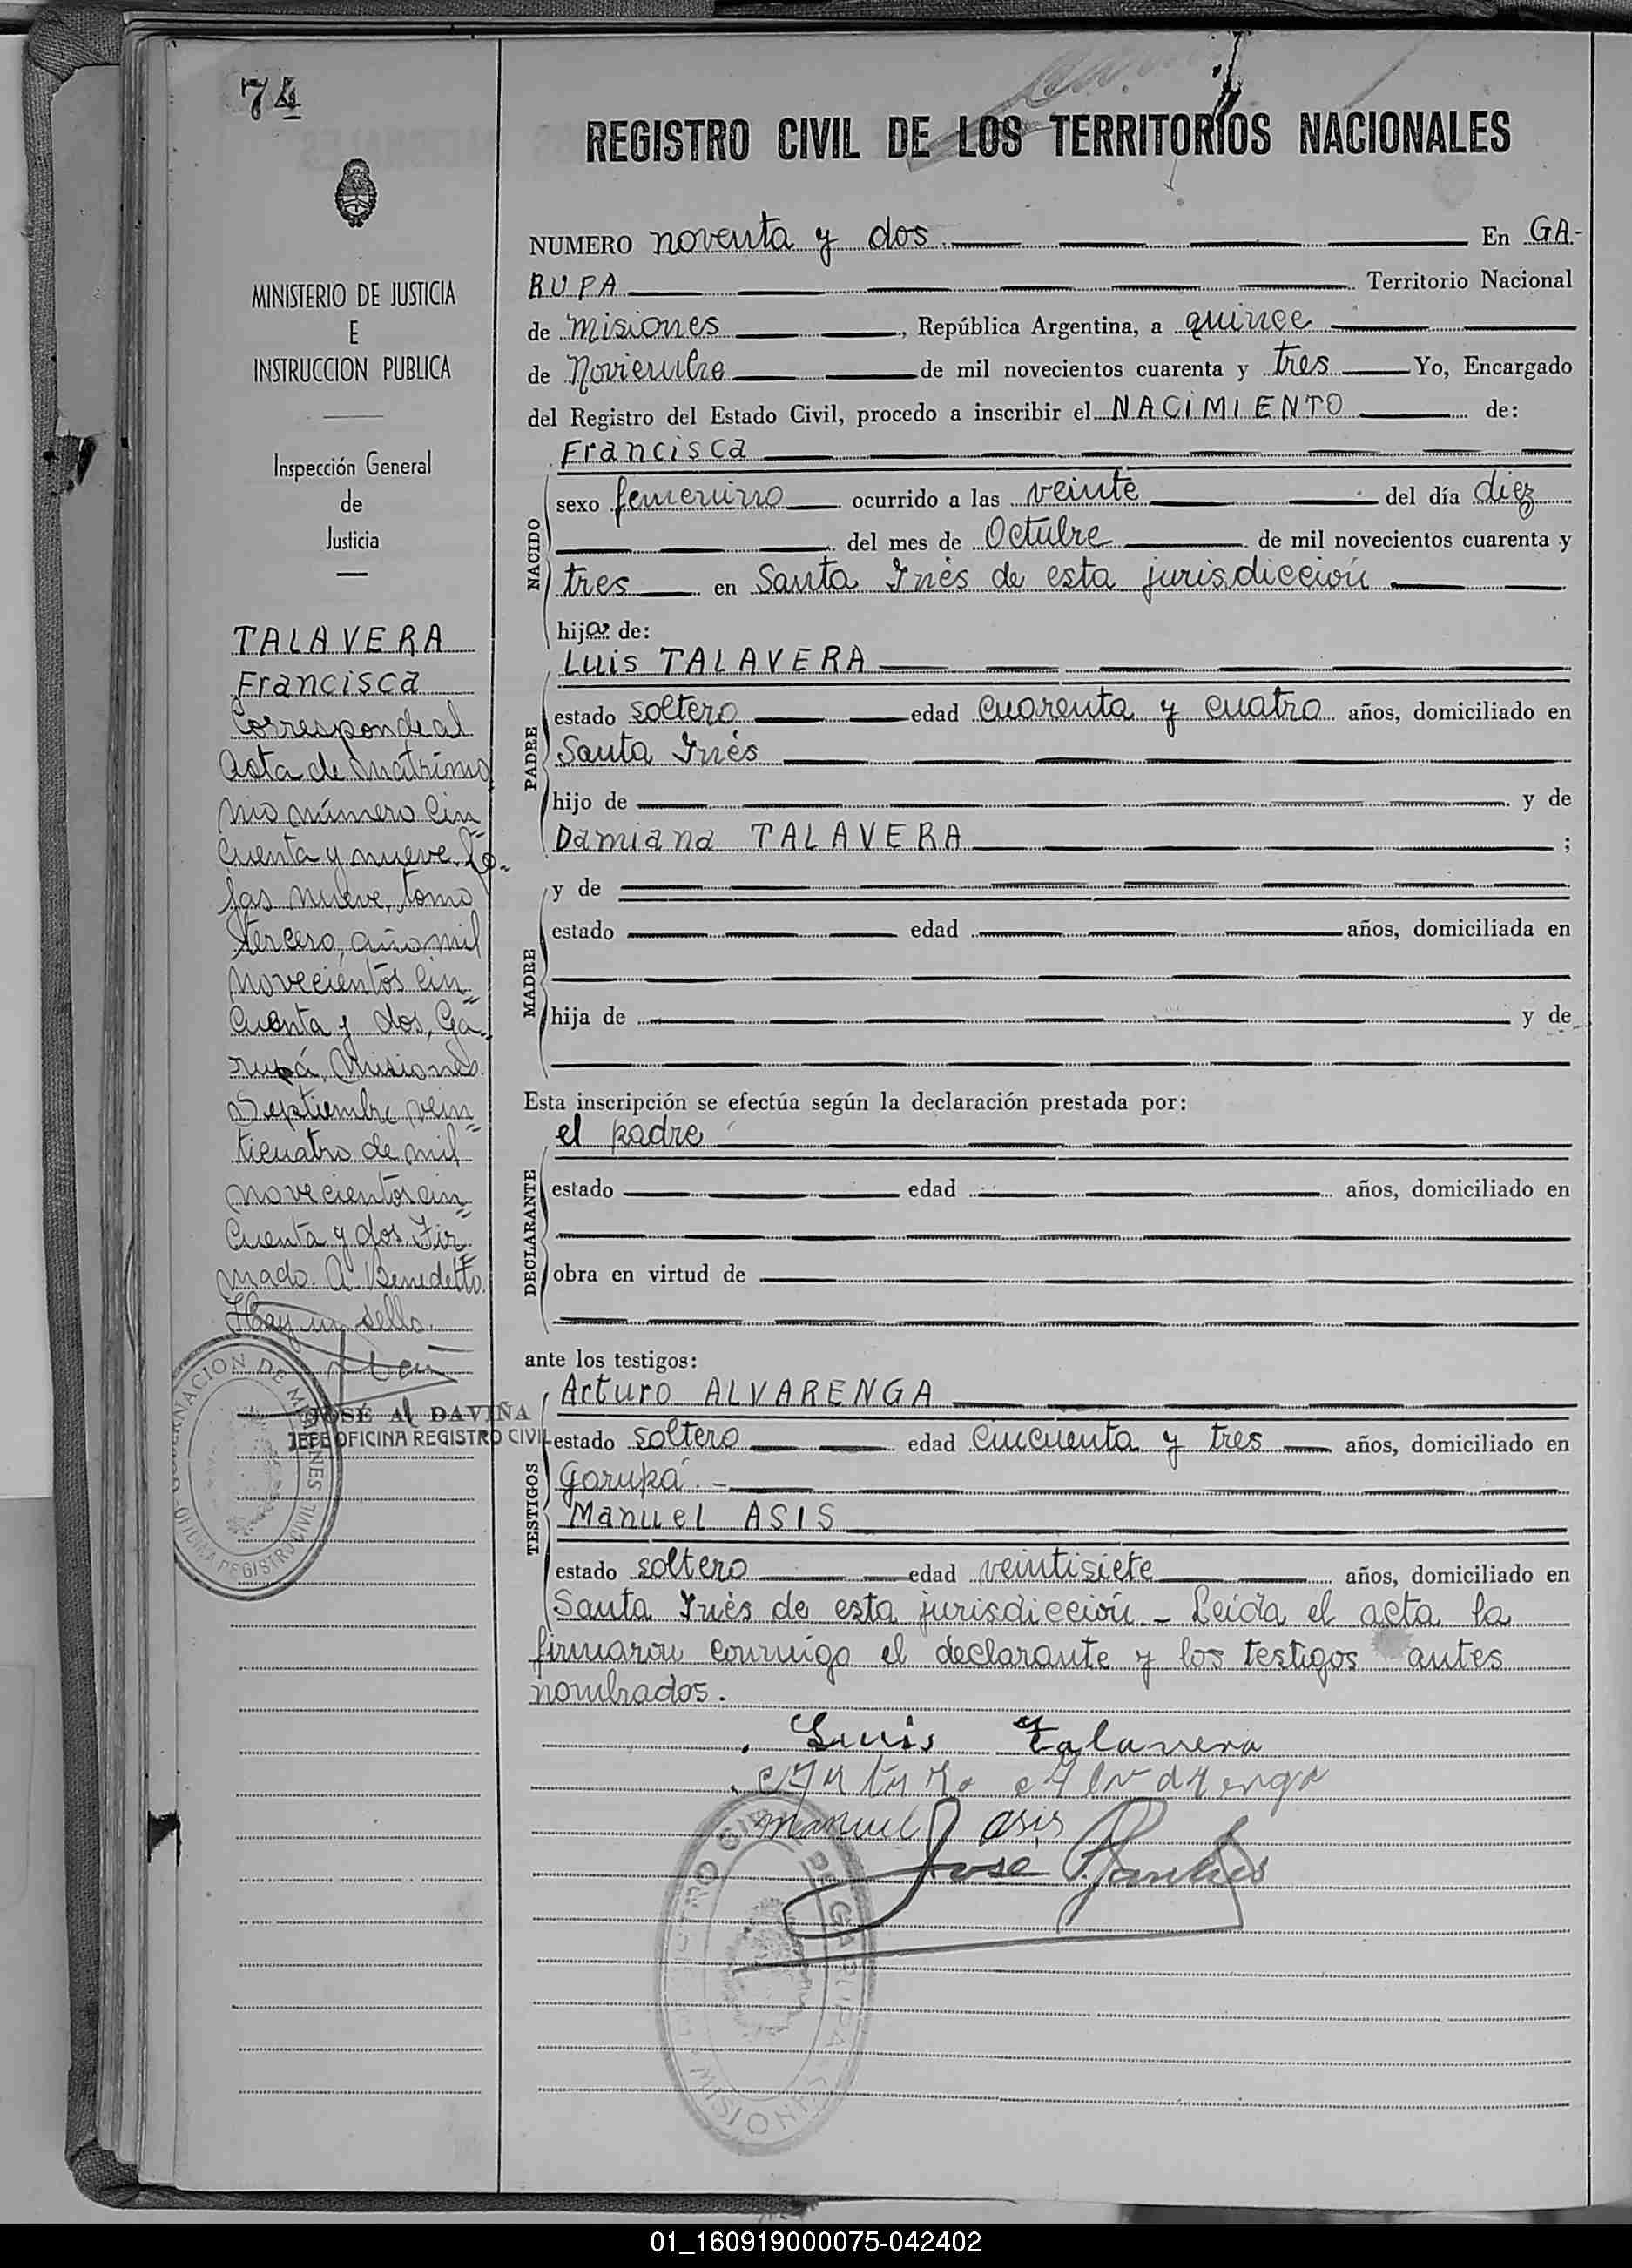 74
REGISTRO CIVIL DE LOS TERRITORIOS NACIONALES
MINISTERIO DE JUSTICIA
E
INSTRUCCION PUBLICA
Inspección General
de
Justicia
TALAVERA
Francisca
Corresponde al
Acta de Matrimo
nio número Cin
cuenta y nueve, fo-
jas nueve, tomo
tercero, año mil
novecientos cin
cuenta y dos, Ga-
rupá, Misiones.
Septiembre vein
ticuatro de mil
novecientos cin
cuenta y dos. Fir
mado. A. Benedetto.
Hay un sello.
JOSÉ A. DAVIÑA
JEFE OFICINA REGISTRO CIVIL
GOBERNACION DE MISIONES
OFICINA REGISTRO CIVIL
NUMERO noventa y dos En GA-
RUPA Territorio Nacional
de Misiones, República Argentina, a quince
de Noviembre de mil novecientos cuarenta y tres Yo, Encargado
del Registro del Estado Civil, procedo a inscribir el NACIMIENTO de:
NACIDO
Francisca
sexo femenino ocurrido a las veinte del día diez
del mes de Octubre de mil novecientos cuarenta y
tres en Santa Inés de esta jurisdicción
hija de:
PADRE
Luis TALAVERA
estado soltero edad cuarenta y cuatro años, domiciliado en
Santa Inés
hijo de y de
Damiana TALAVERA ;
MADRE
y de
estado edad años, domiciliada en
hija de y de
Esta inscripción se efectúa según la declaración prestada por:
DECLARANTE
el padre
estado edad años, domiciliado en
obra en virtud de
ante los testigos:
TESTIGOS
Arturo ALVARENGA
estado soltero edad cincuenta y tres años, domiciliado en
Garupá.-
Manuel ASIS
estado soltero edad veintisiete años, domiciliado en
Santa Inés de esta jurisdicción - Leída el acta la
firmaron conmigo el declarante y los testigos antes
nombrados.
Luis Talavera
Arturo Alvarenga
manuel asis
Jose
REGISTRO CIVIL DE GARUPA
MISIONES
01_160919000075-042402